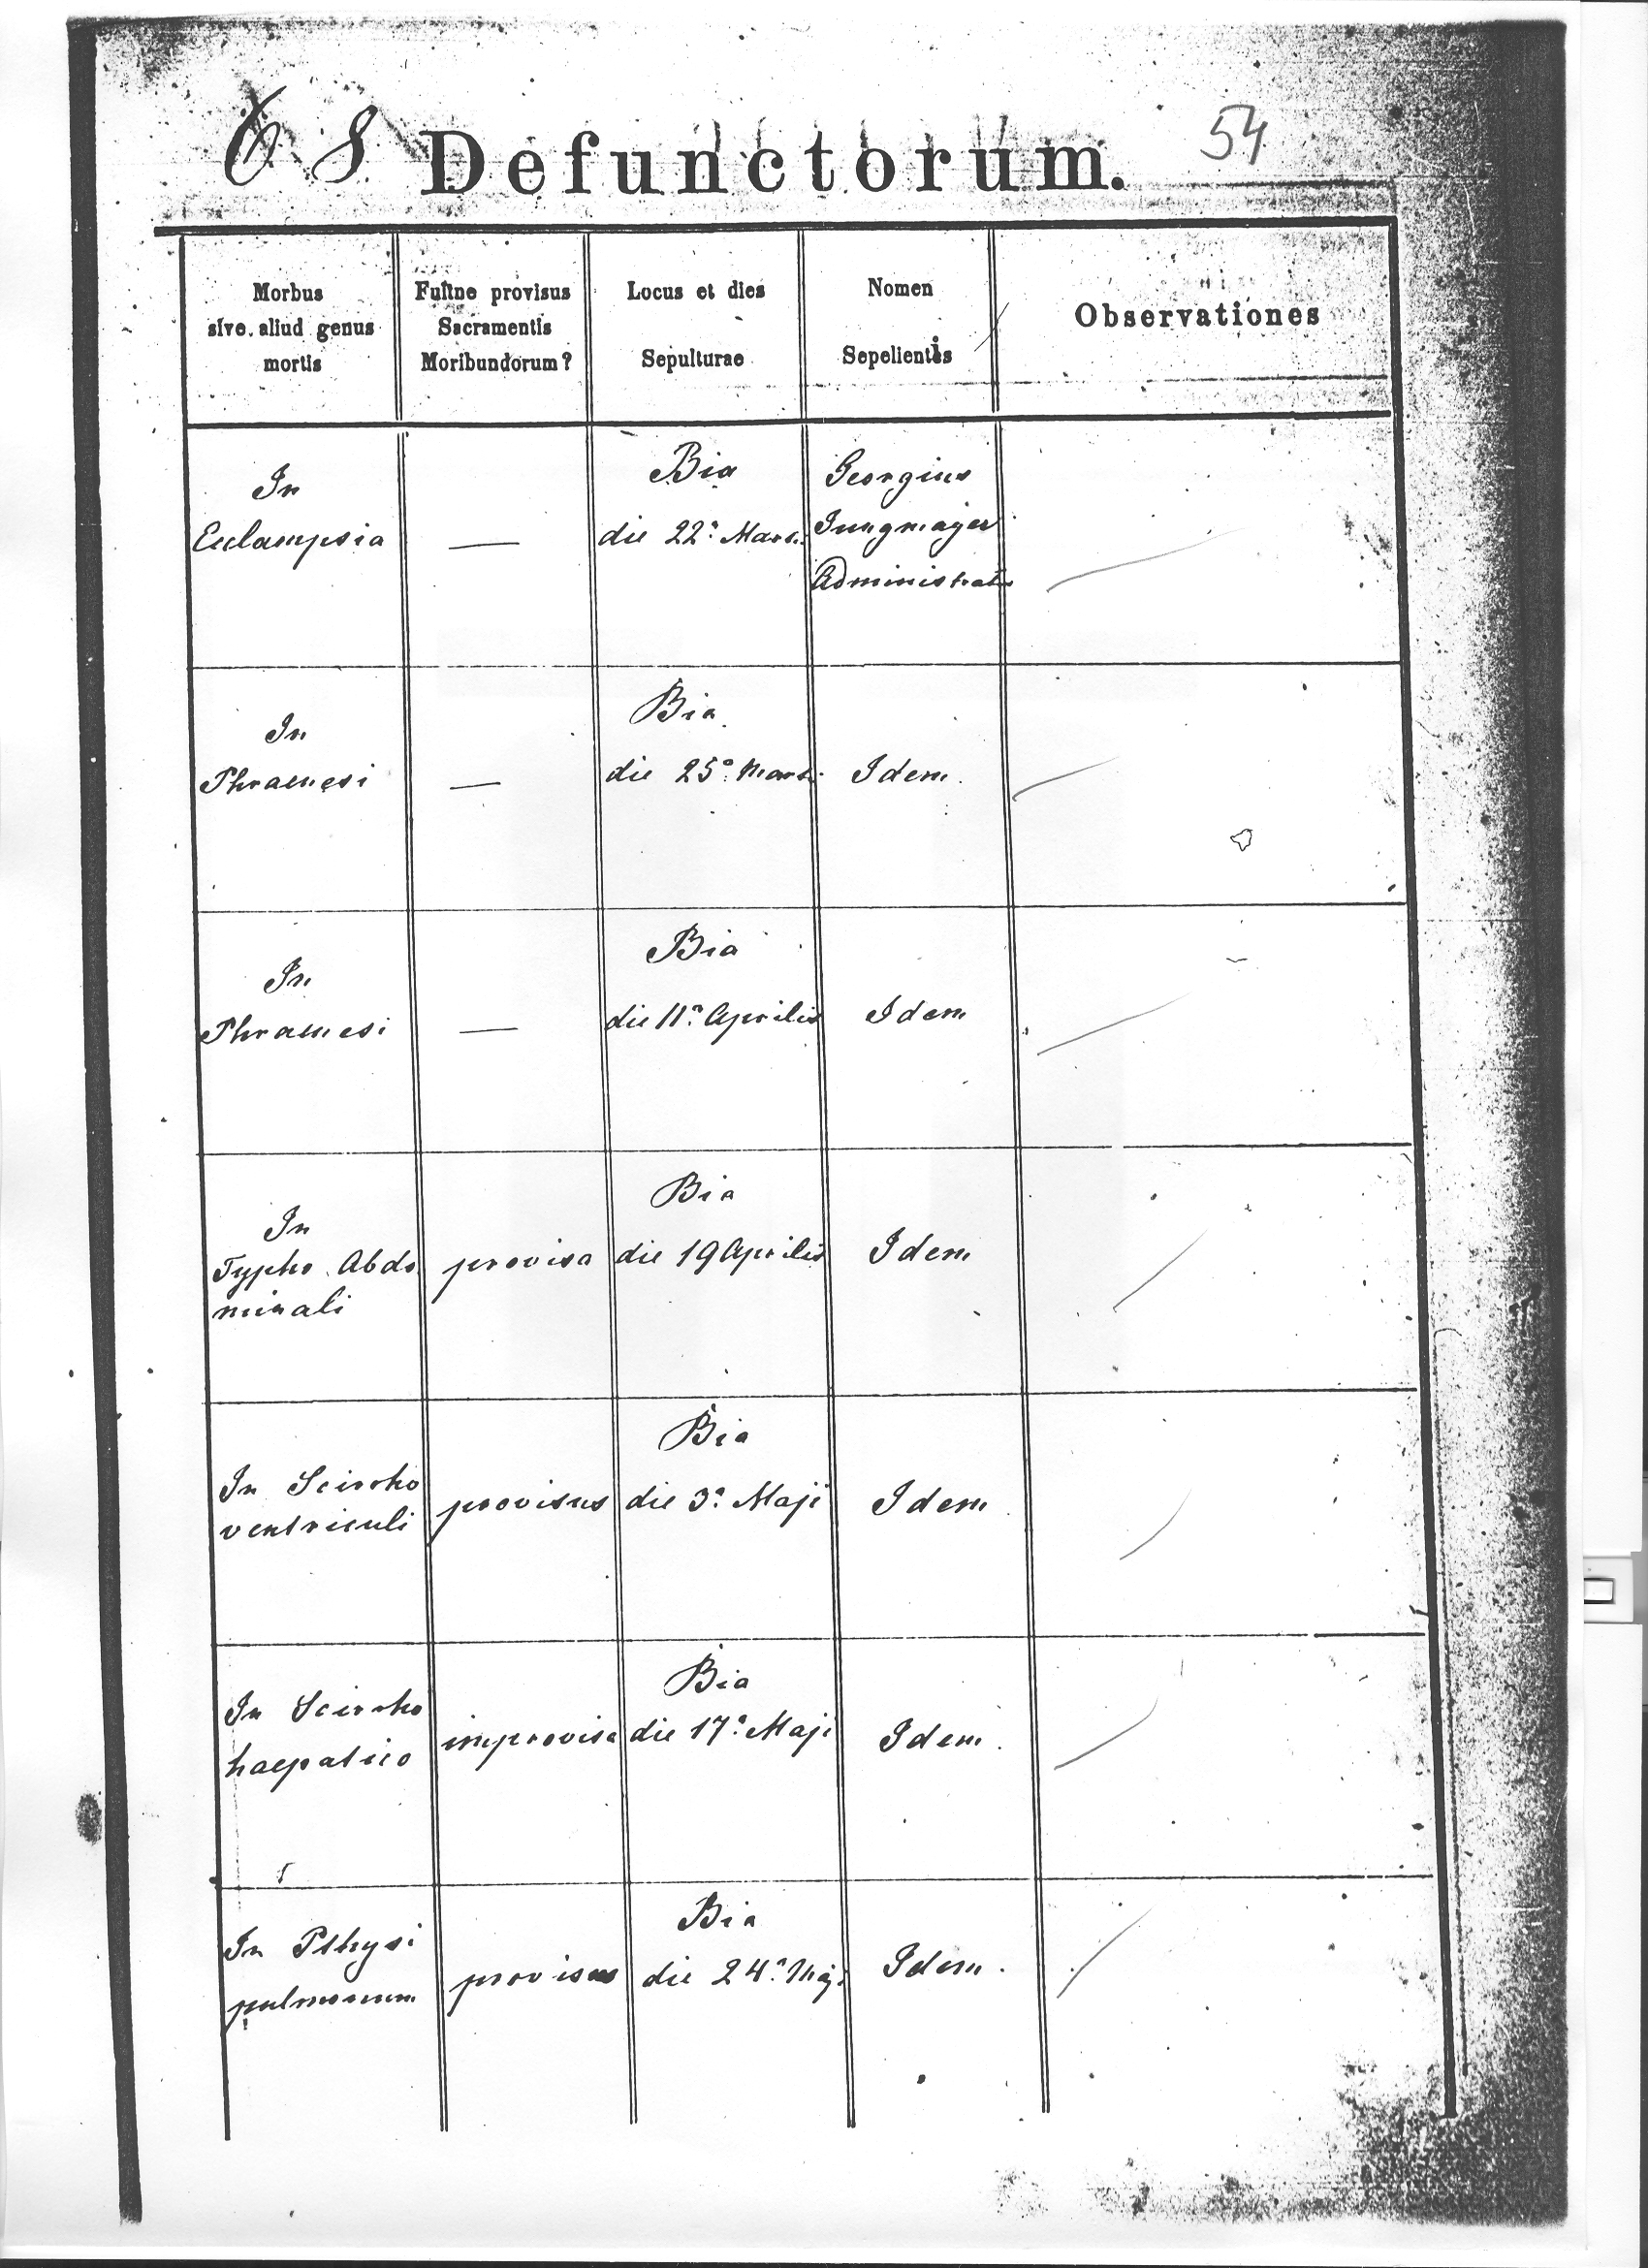 68 Defunctorum. 54
Morbus
sive aliud genus
mortis
Fuitne provisus
Sacramentis
Moribundorum?
Locus et dies
Sepulturae
Nomen
Sepelientis
Observationes
In
Eclampsia
—
Bia
die 22a Marti
Georgius
Jungmayer
Administrator
In
Phraenesi
—
Bia
die 25a Marti
Idem.
In
Phraenesi
—
Bia
die 11a Aprilis
Idem
In
Typho Abdo
minali
provisa
Bia
die 19 Aprilis
Idem
In Scirrho
ventriculi
provisus
Bia
die 3a Maji
Idem
In Scirrho
haepatico
improvisa
Bia
die 17a Maji
Idem.
In Pthysi
pulmonum
provisus
Bia
die 24a Maji
Idem.